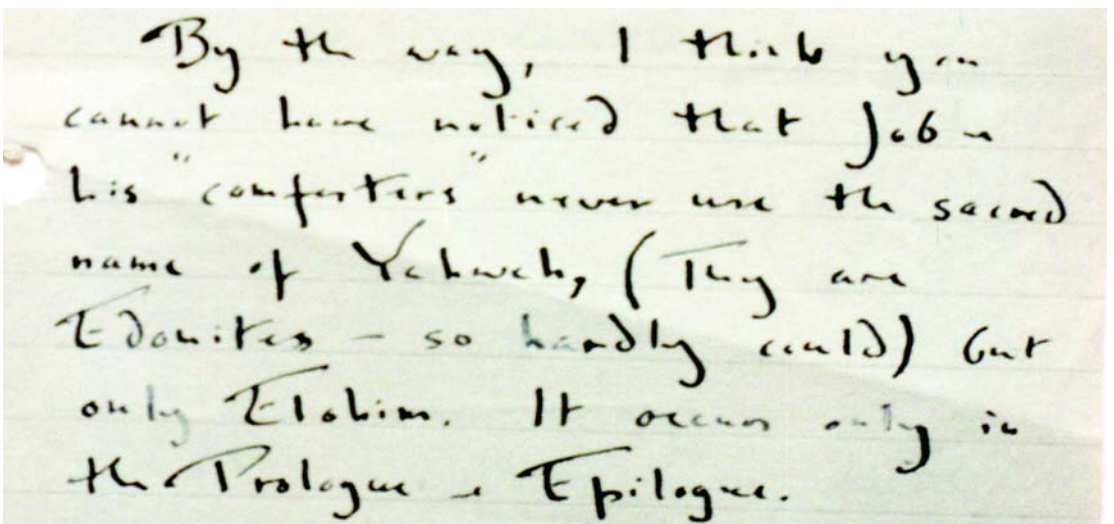 By the way, I think you
cannot have noticed that Job &
his "comforters" never use the sacred
name of Yahweh, (They are
Edomites - so hardly could) but
only Elohim. It occurs only in
the Prologue & Epilogue.